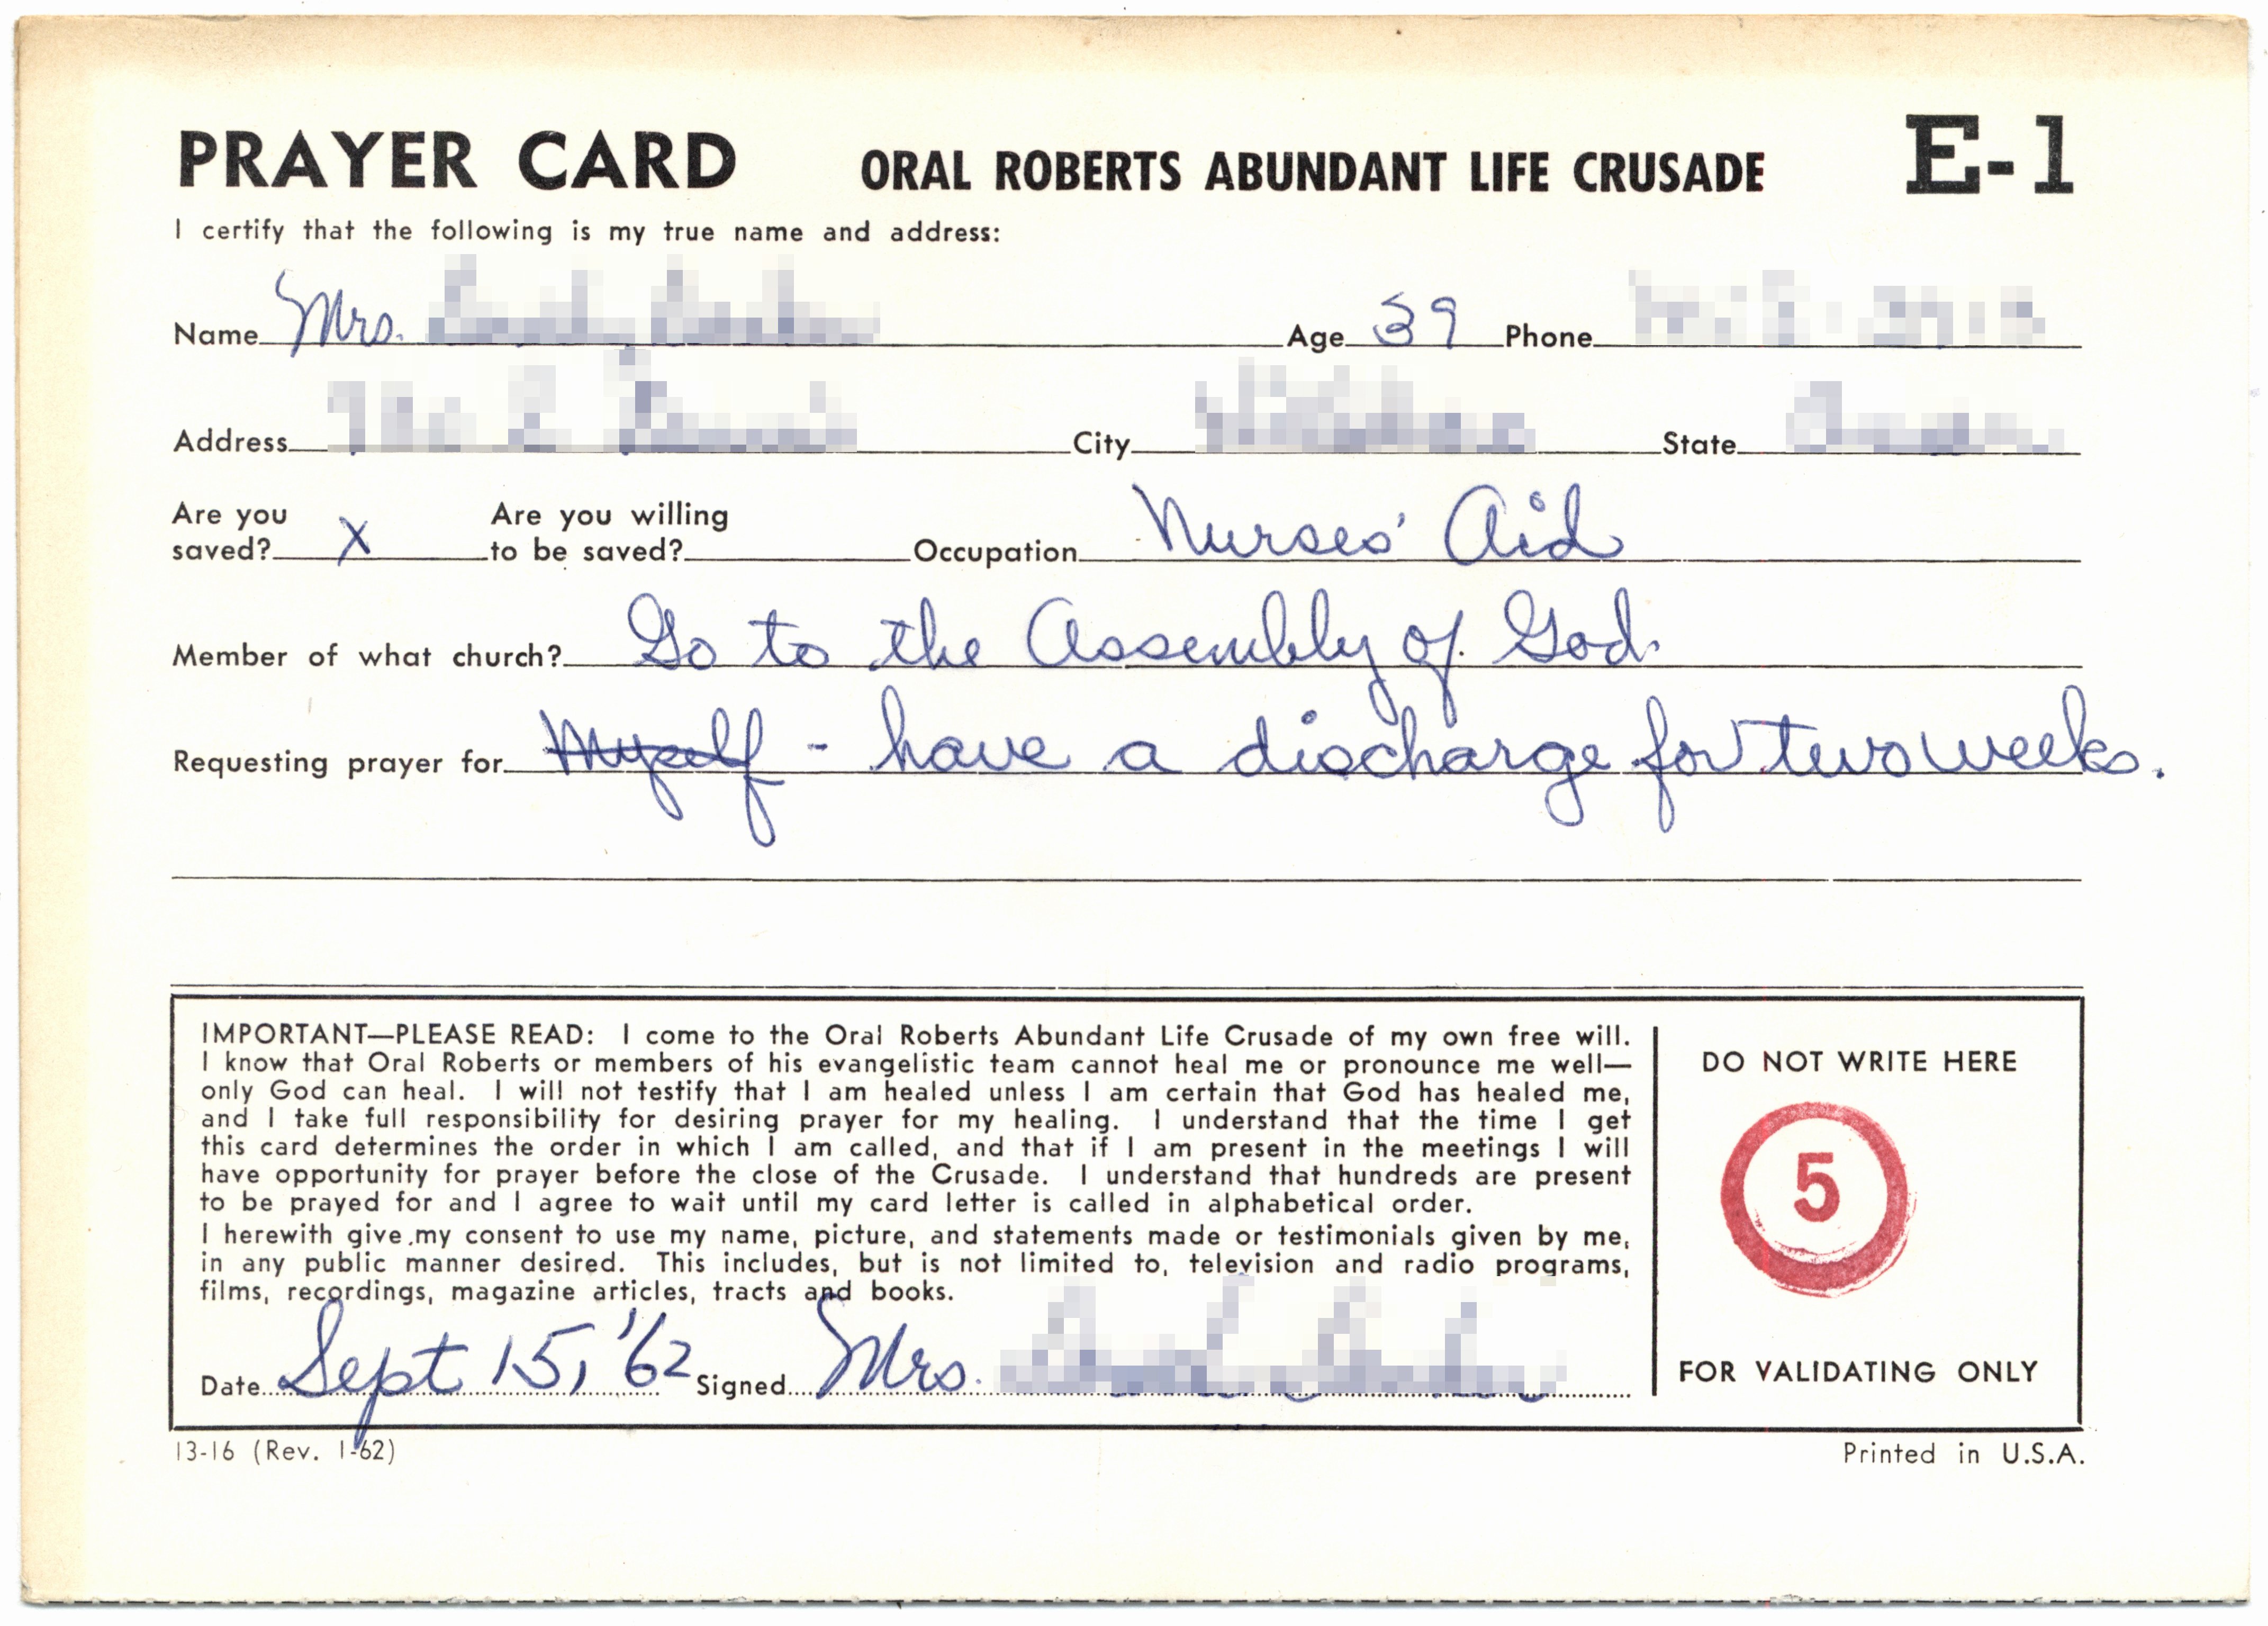 PRAYER CARD ORAL ROBERTS ABUNDANT LIFE CRUSADE E-1
I certify that the following is my true name and address:
Name Mrs. Age 39 Phone
Address City State
Are you saved? X Are you willing to be saved? Occupation Nurses' Aid
Member of what church? Go to the Assembly of God.
Requesting prayer for Myself - have a discharge for two weeks.
IMPORTANT—PLEASE READ: I come to the Oral Roberts Abundant Life Crusade of my own free will.
I know that Oral Roberts or members of his evangelistic team cannot heal me or pronounce me well—
only God can heal. I will not testify that I am healed unless I am certain that God has healed me,
and I take full responsibility for desiring prayer for my healing. I understand that the time I get
this card determines the order in which I am called, and that if I am present in the meetings I will
have opportunity for prayer before the close of the Crusade. I understand that hundreds are present
to be prayed for and I agree to wait until my card letter is called in alphabetical order.
I herewith give my consent to use my name, picture, and statements made or testimonials given by me,
in any public manner desired. This includes, but is not limited to, television and radio programs,
films, recordings, magazine articles, tracts and books.
Date Sept 15, '62 Signed Mrs.
DO NOT WRITE HERE
5
FOR VALIDATING ONLY
13-16 (Rev. 1-62)
Printed in U.S.A.